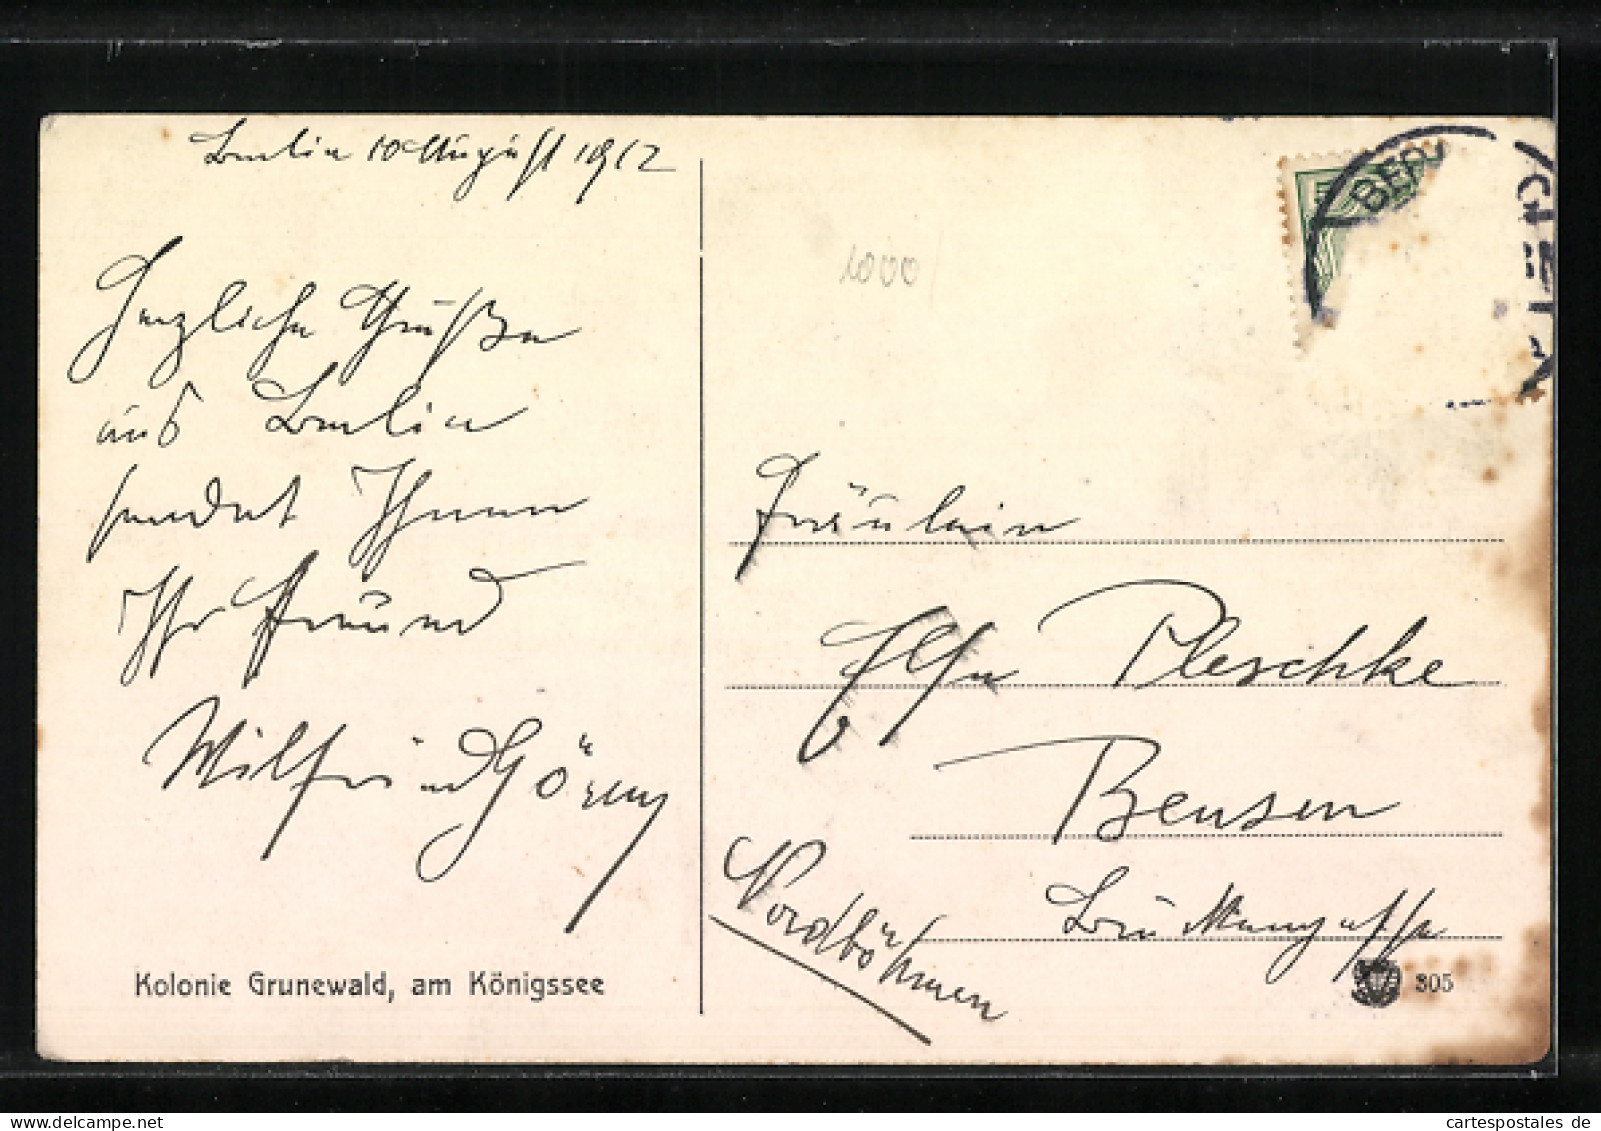 Berlin 10 August 1912
Herzliche Grüße
aus Berlin
sendet Ihnen
Ihr Freund
Wilfried Görey
1000
BER
Fräulein
Elsa Pleschke
Bensen
Nordböhmen
Kolonie Grunewald, am Königssee
305
cartespostales de